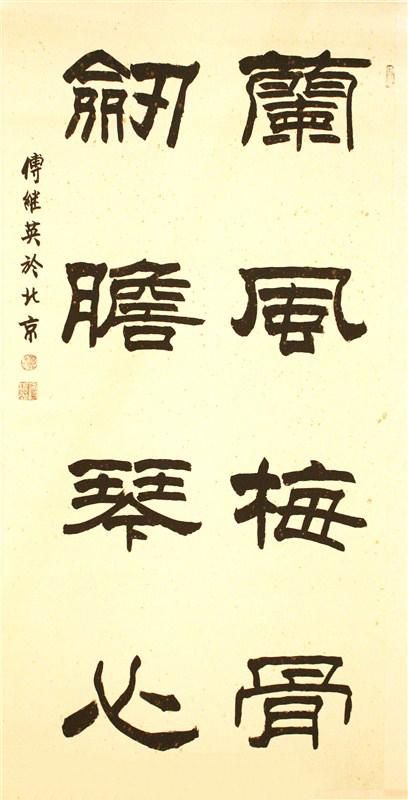 蘭風梅骨
劒膽琴心
傅繼英於北京